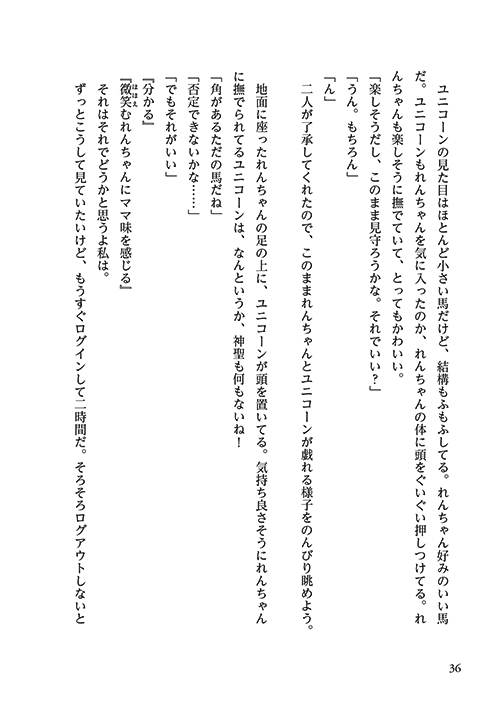 ユニコーンの見た目はほとんど小さい馬だけど、結構もふもふしてる。れんちゃん好みのいい馬
だ。ユニコーンもれんちゃんを気に入ったのか、れんちゃんの体に頭をぐいぐい押しつけてる。れ
んちゃんも楽しそうに撫でていて、とってもかわいい。
「楽しそうだし、このまま見守ろうかな。それでいい？」
「うん。もちろん」
「ん」
二人が了承してくれたので、このままれんちゃんとユニコーンが戯れる様子をのんびり眺めよう。
地面に座ったれんちゃんの足の上に、ユニコーンが頭を置いてる。気持ち良さそうにれんちゃん
に撫でられてるユニコーンは、なんというか、神聖も何もないね！
「角があるただの馬だね」
「否定できないかな……」
「でもそれがいい」
『分かる』
『微笑むれんちゃんにママ味を感じる』
ほほえ
それはそれでどうかと思うよ私は。
ずっとこうして見ていたいけど、もうすぐログインして二時間だ。そろそろログアウトしないと
36